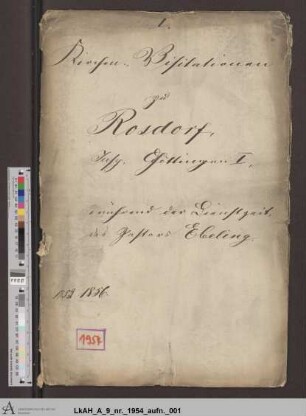 1.
Kirchen-Visitationen
zu
Rosdorf,
Insp. Göttingen I.
während der Dienstzeit
des Pastors Ebeling.
1856
1957
LkAH_A_9_nr._1954_aufn._001